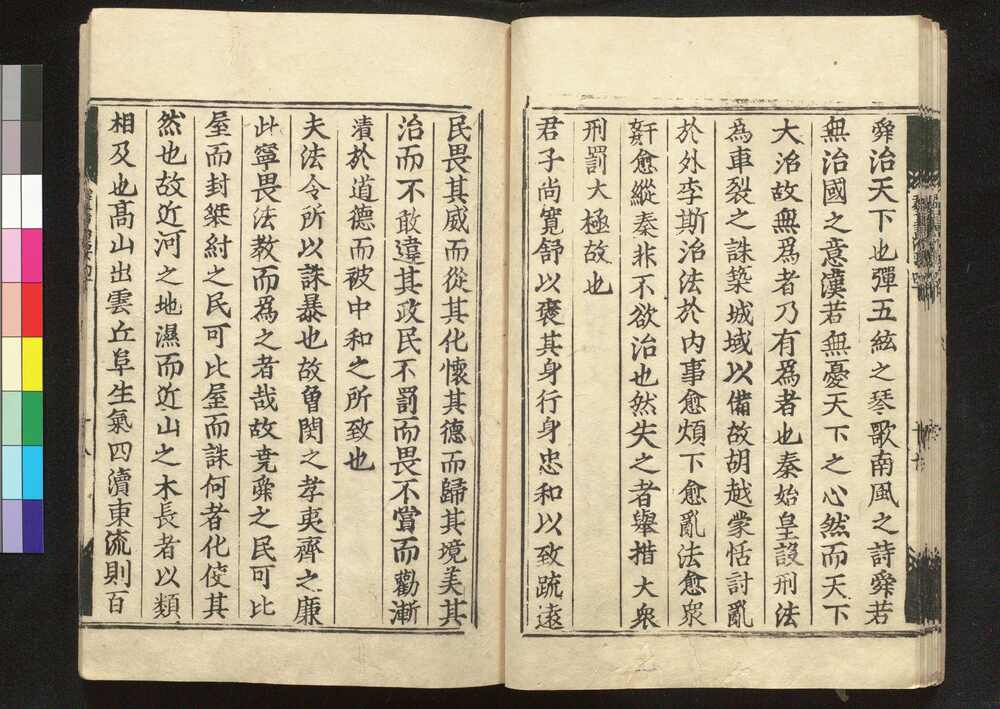 舜治天下也彈五絃之琴歌南風之詩舜若
無治國之意漢若無憂天下之心然而天下
大治故無爲者乃有爲者也秦始皇設刑法
爲車裂之誅築城域以備故胡越蒙恬討亂
於外李斯治法於內事愈煩下愈亂法愈衆
姧愈縱秦非不欲治也然失之者舉措大衆
刑罰大極故也
君子尚寬舒以褒其身行身忠和以致疏遠
民畏其威而從其化懷其德而歸其境美其
治而不敢違其政民不罰而畏不賞而勸漸
漬於道德而被中和之所致也
夫法令所以誅暴也故曾閔之孝夷齊之廉
此寧畏法教而爲之者哉故堯舜之民可比
屋而封桀紂之民可比屋而誅何者化使其
然也故近河之地濕而近山之木長者以類
相及也髙山出雲丘阜生氣四瀆東流則百